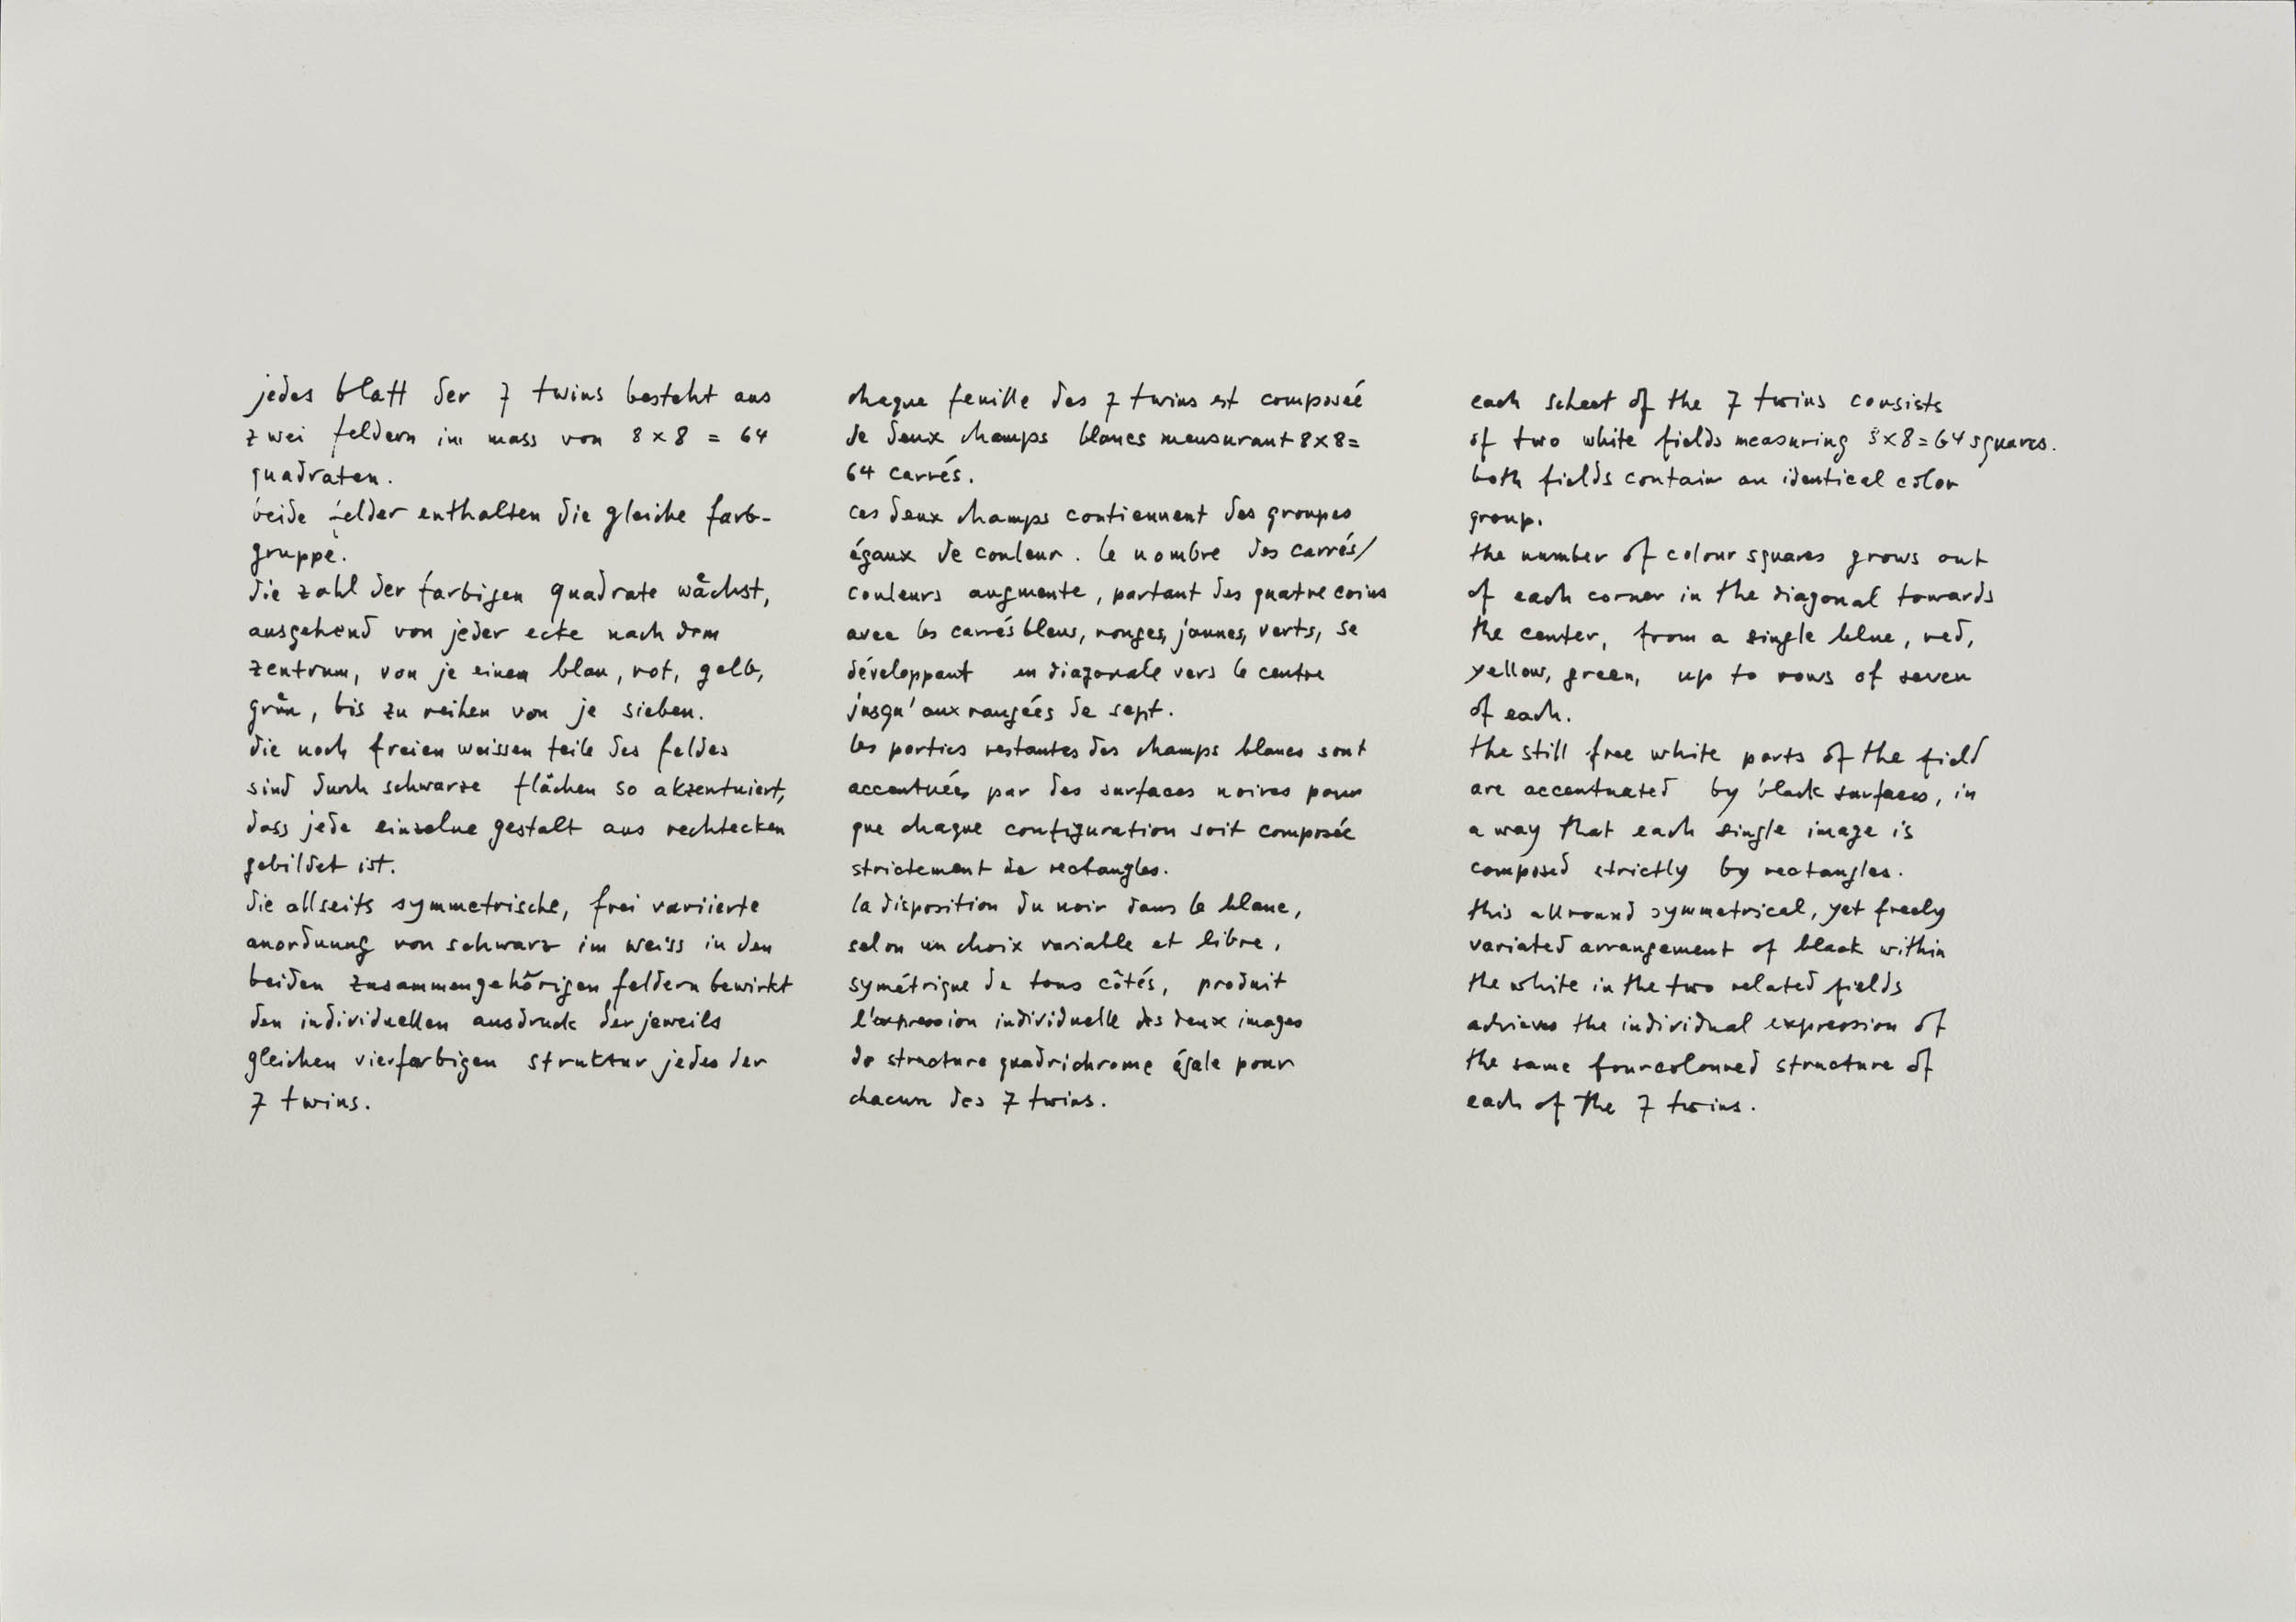 jedes blatt der 7 twins besteht aus
zwei feldern im mass von 8 x 8 = 64
quadraten.
beide felder enthalten die gleiche farb-
gruppe.
die zahl der farbigen quadrate wächst,
ausgehend von jeder ecke nach dem
zentrum, von je einem blau, rot, gelb,
grün, bis zu reihen von je sieben.
die noch freien weissen teile des feldes
sind durch schwarze flächen so akzentuiert,
dass jede einzelne gestalt aus rechtecken
gebildet ist.
die allseits symmetrische, frei variierte
anordnung von schwarz im weiss in den
beiden zusammengehörigen feldern bewirkt
den individuellen ausdruck der jeweils
gleichen vierfarbigen struktur jedes der
7 twins.
chaque feuille des 7 twins est composée
de deux champs blancs mensurant 8x8=
64 carrés.
ces deux champs contiennent des groupes
égaux de couleur. le nombre des carrés/
couleurs augmente, partant des quatre coins
avec les carrés bleus, rouges, jaunes, verts, se
développant en diagonale vers le centre
jusqu'aux rangées de sept.
les parties restantes des champs blancs sont
accentuées par des surfaces noires pour
que chaque configuration soit composée
strictement de rectangles.
la disposition du noir dans le blanc,
selon un choix variable et libre,
symétrique de tous côtés, produit
l'expression individuelle des deux images
de structure quadrichrome égale pour
chacun des 7 twins.
each scheet of the 7 twins consists
of two white fields measuring 8x8=64 squares.
both fields contain an identical color
group.
the number of colour squares grows out
of each corner in the diagonal towards
the center, from a single blue, red,
yellow, green, up to rows of seven
of each.
the still free white parts of the field
are accentuated by black surfaces, in
a way that each single image is
composed strictly by rectangles.
this allround symmetrical, yet freely
variated arrangement of black within
the white in the two related fields
achieves the individual expression of
the same fourcoloured structure of
each of the 7 twins.